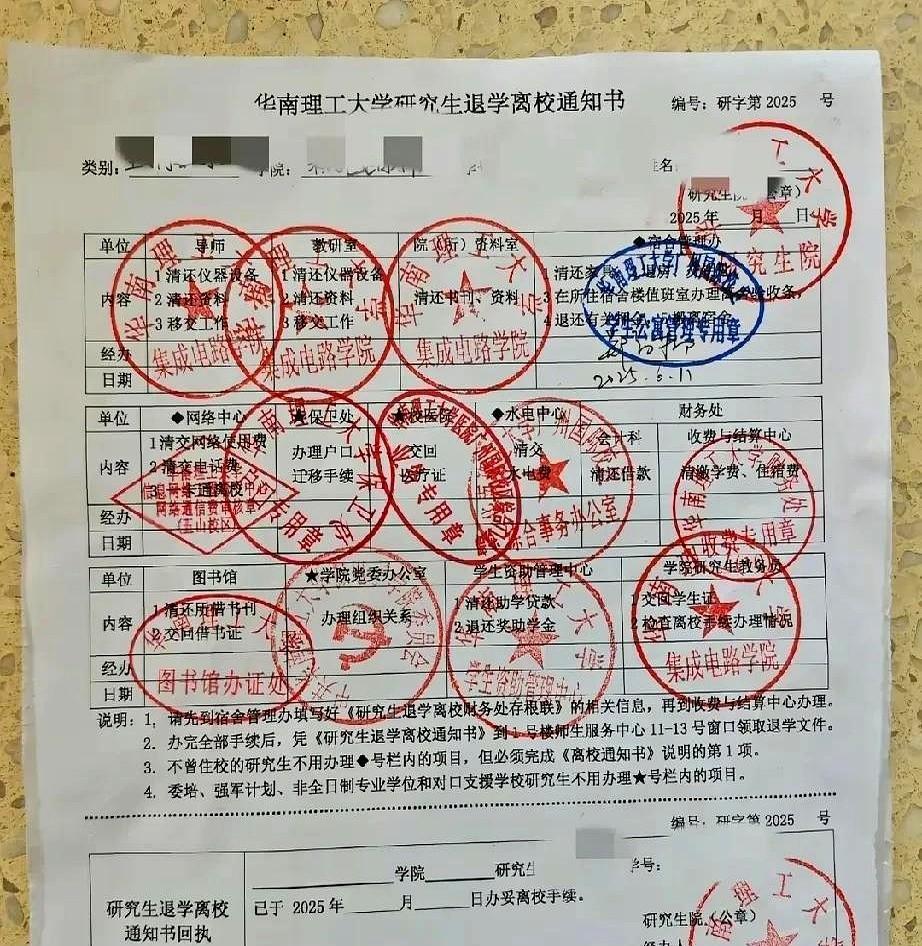 华南理工大学研究生退学离校通知书
编号：研字第 2025 号
类别： 学院：
研究生院（公章）
2025 年 月 日
单位 导师 教研室 院（所）资料室 ◆宿舍管理办
内容 1 清还仪器设备 1 清还仪器设备 清还书刊、资料
2 清还资料 2 清还资料 3 在所住宿舍楼值班室办理
3 移交工作 3 移交工作 4 退还有关
经办
日期 2025.6.11
集成电路学院 集成电路学院 集成电路学院
单位 ◆网络中心 ★保卫处 ◆校医院 ◆水电中心 财务处
会计科 收费与结算中心
内容 1 清交网络使用费 办理户口 交回 清交 清还借款 清缴学费、住宿费
2 清交电话费 迁移手续 医疗证 水电费
经办
日期
网络通信费审核章
（五山校区）
专用章
综合事务办公室
单位 图书馆 ★学院党委办公室 学生资助管理中心 学院研究生教务员
内容 1 清还所借书刊 办理组织关系 1 清还助学贷款 1 交回学生证
2 交回借书证 2 退还奖助学金 2 检查离校手续办理情况
经办
日期
图书馆办证处 学生资助管理中心 集成电路学院
说明：1. 请先到宿舍管理办填写好《研究生退学离校财务处存根联》的相关信息，再到收费与结算中心办理。
2. 办完全部手续后，凭《研究生退学离校通知书》到 1 号楼师生服务中心 11-13 号窗口领取退学文件。
3. 不曾住校的研究生不用办理◆号栏内的项目，但必须完成《离校通知书》说明的第 1 项。
4. 委培、强军计划、非全日制专业学位和对口支援学校研究生不用办理★号栏内的项目。
编号：研字第 2025 号
学院 研究生 学号：
已于 2025 年 月 日办妥离校手续。
研究生退学离校
通知书回执
研究生院（公章）